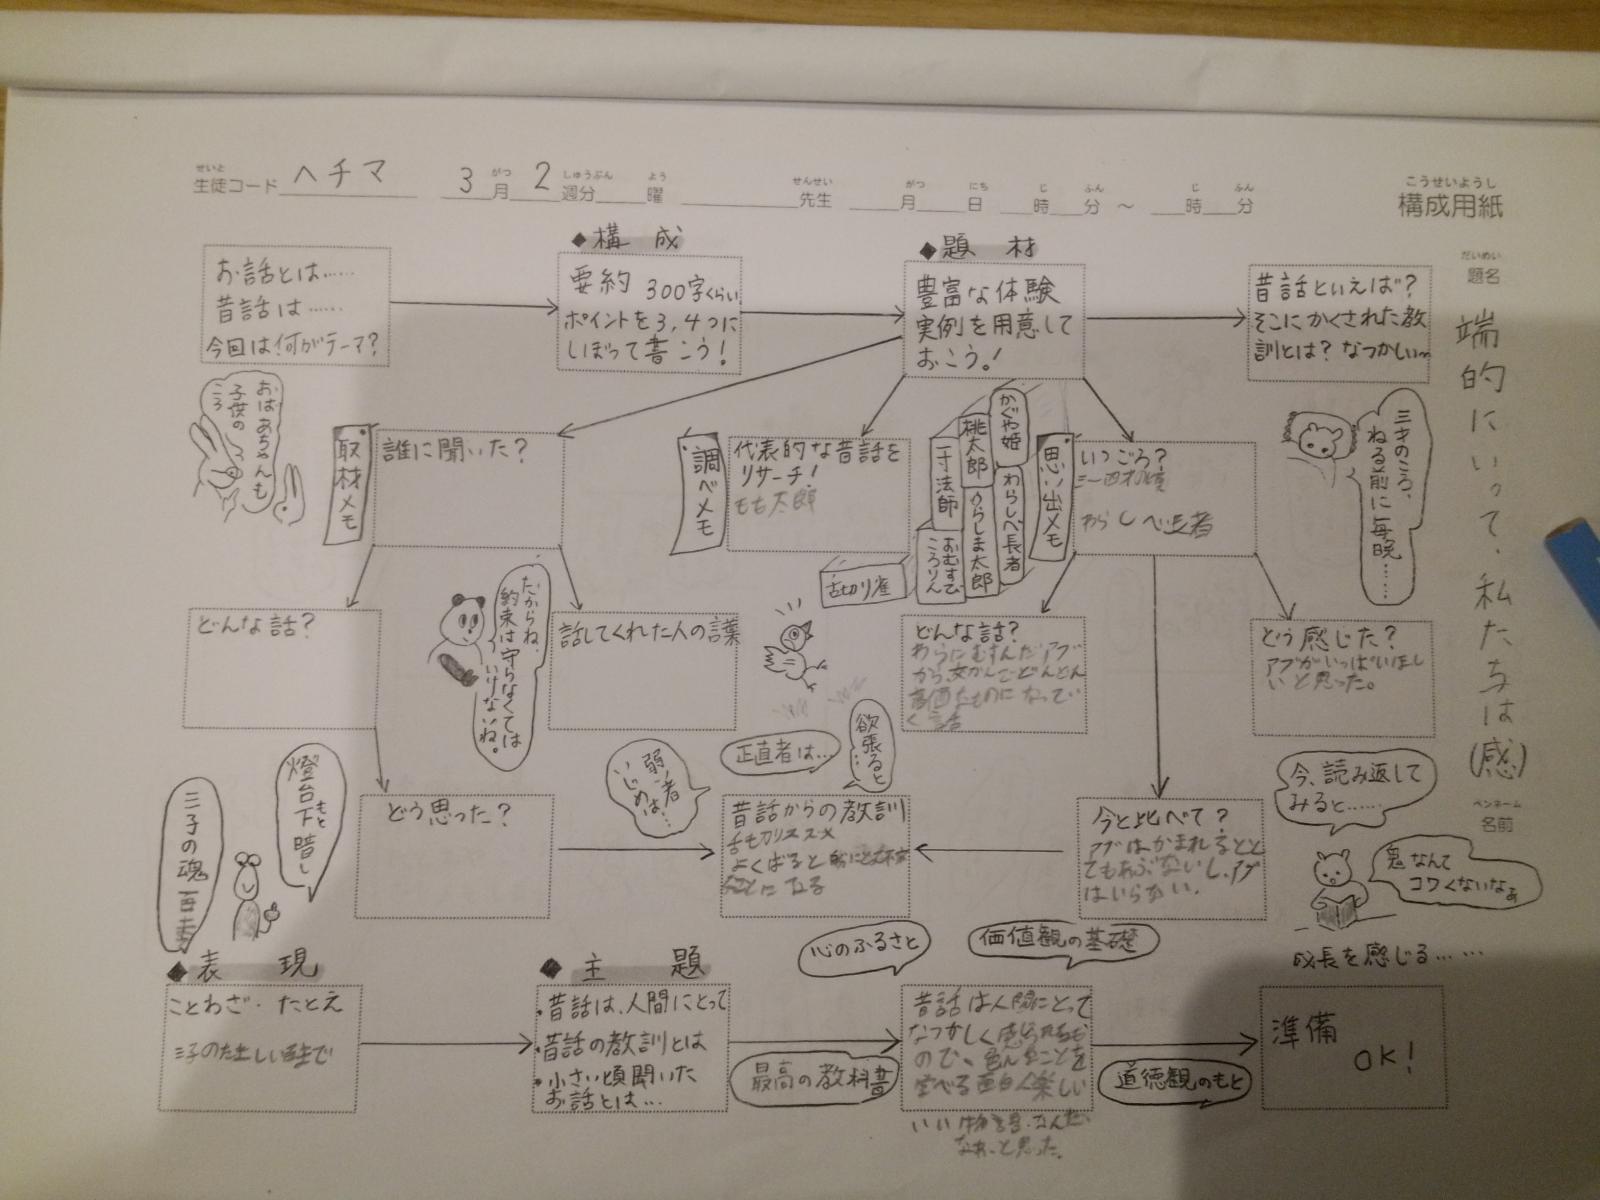 せいと
生徒コード ヘチマ
がつ しゅうぶん よう
3月 2週分 曜
せんせい
先生
がつ にち じ ふん じ ふん
月 日 時 分 ～ 時 分
こうせいようし
構成用紙
だいめい
題名
端的にいって、私たちは(感)
ペンネーム
名前
お話とは……
昔話は……
今回は何がテーマ？
◆構成
要約 300字くらい
ポイントを3,4つに
しぼって書こう！
◆題材
豊富な体験
実例を用意して
おこう！
昔話といえば？
そこにかくされた教
訓とは？なつかしい〜
おばあちゃんも
子供の
ころ
取材メモ
誰に聞いた？
調べメモ
代表的な昔話を
リサーチ！
もも太郎
かぐや姫
桃太郎
一寸法師
わらしべ長者
うらしま太郎
おむすび
ころりん
舌切り雀
思い出メモ
いつごろ？
三〜四才頃
わらしべ長者
三才のころ、
ねる前に毎晩……
どんな話？
だからね、
約束は守らなくては
いけないね。
話してくれた人の言葉
どんな話？
わらにむすんだアブ
から交かんでどんどん
高価なものになってい
く話
どう感じた？
アブがいっぱいほし
いと思った。
燈台下暗し
もと
三子の魂百まで
どう思った？
弱い者
いじめは…
正直者は…
欲張ると
…
昔話からの教訓
舌切りスズメ
よくばると
ことになる
今と比べて？
アブはかまれると
てもあぶないし、アブ
はいらない。
今、読み返して
みると……
鬼なんて
コワくないなぁ
成長を感じる……
心のふるさと
価値観の基礎
◆表現
ことわざ・たとえ
三子のたましい百まで
◆主題
・昔話は、人間にとって
・昔話の教訓とは
・小さい頃聞いた
お話とは…
最高の教科書
昔話は人間にとって
なつかしく感じられるも
ので、色んなことを
学べる面白く楽しい
いい物語なんだ
なぁと思った。
道徳観のもと
準備
OK！